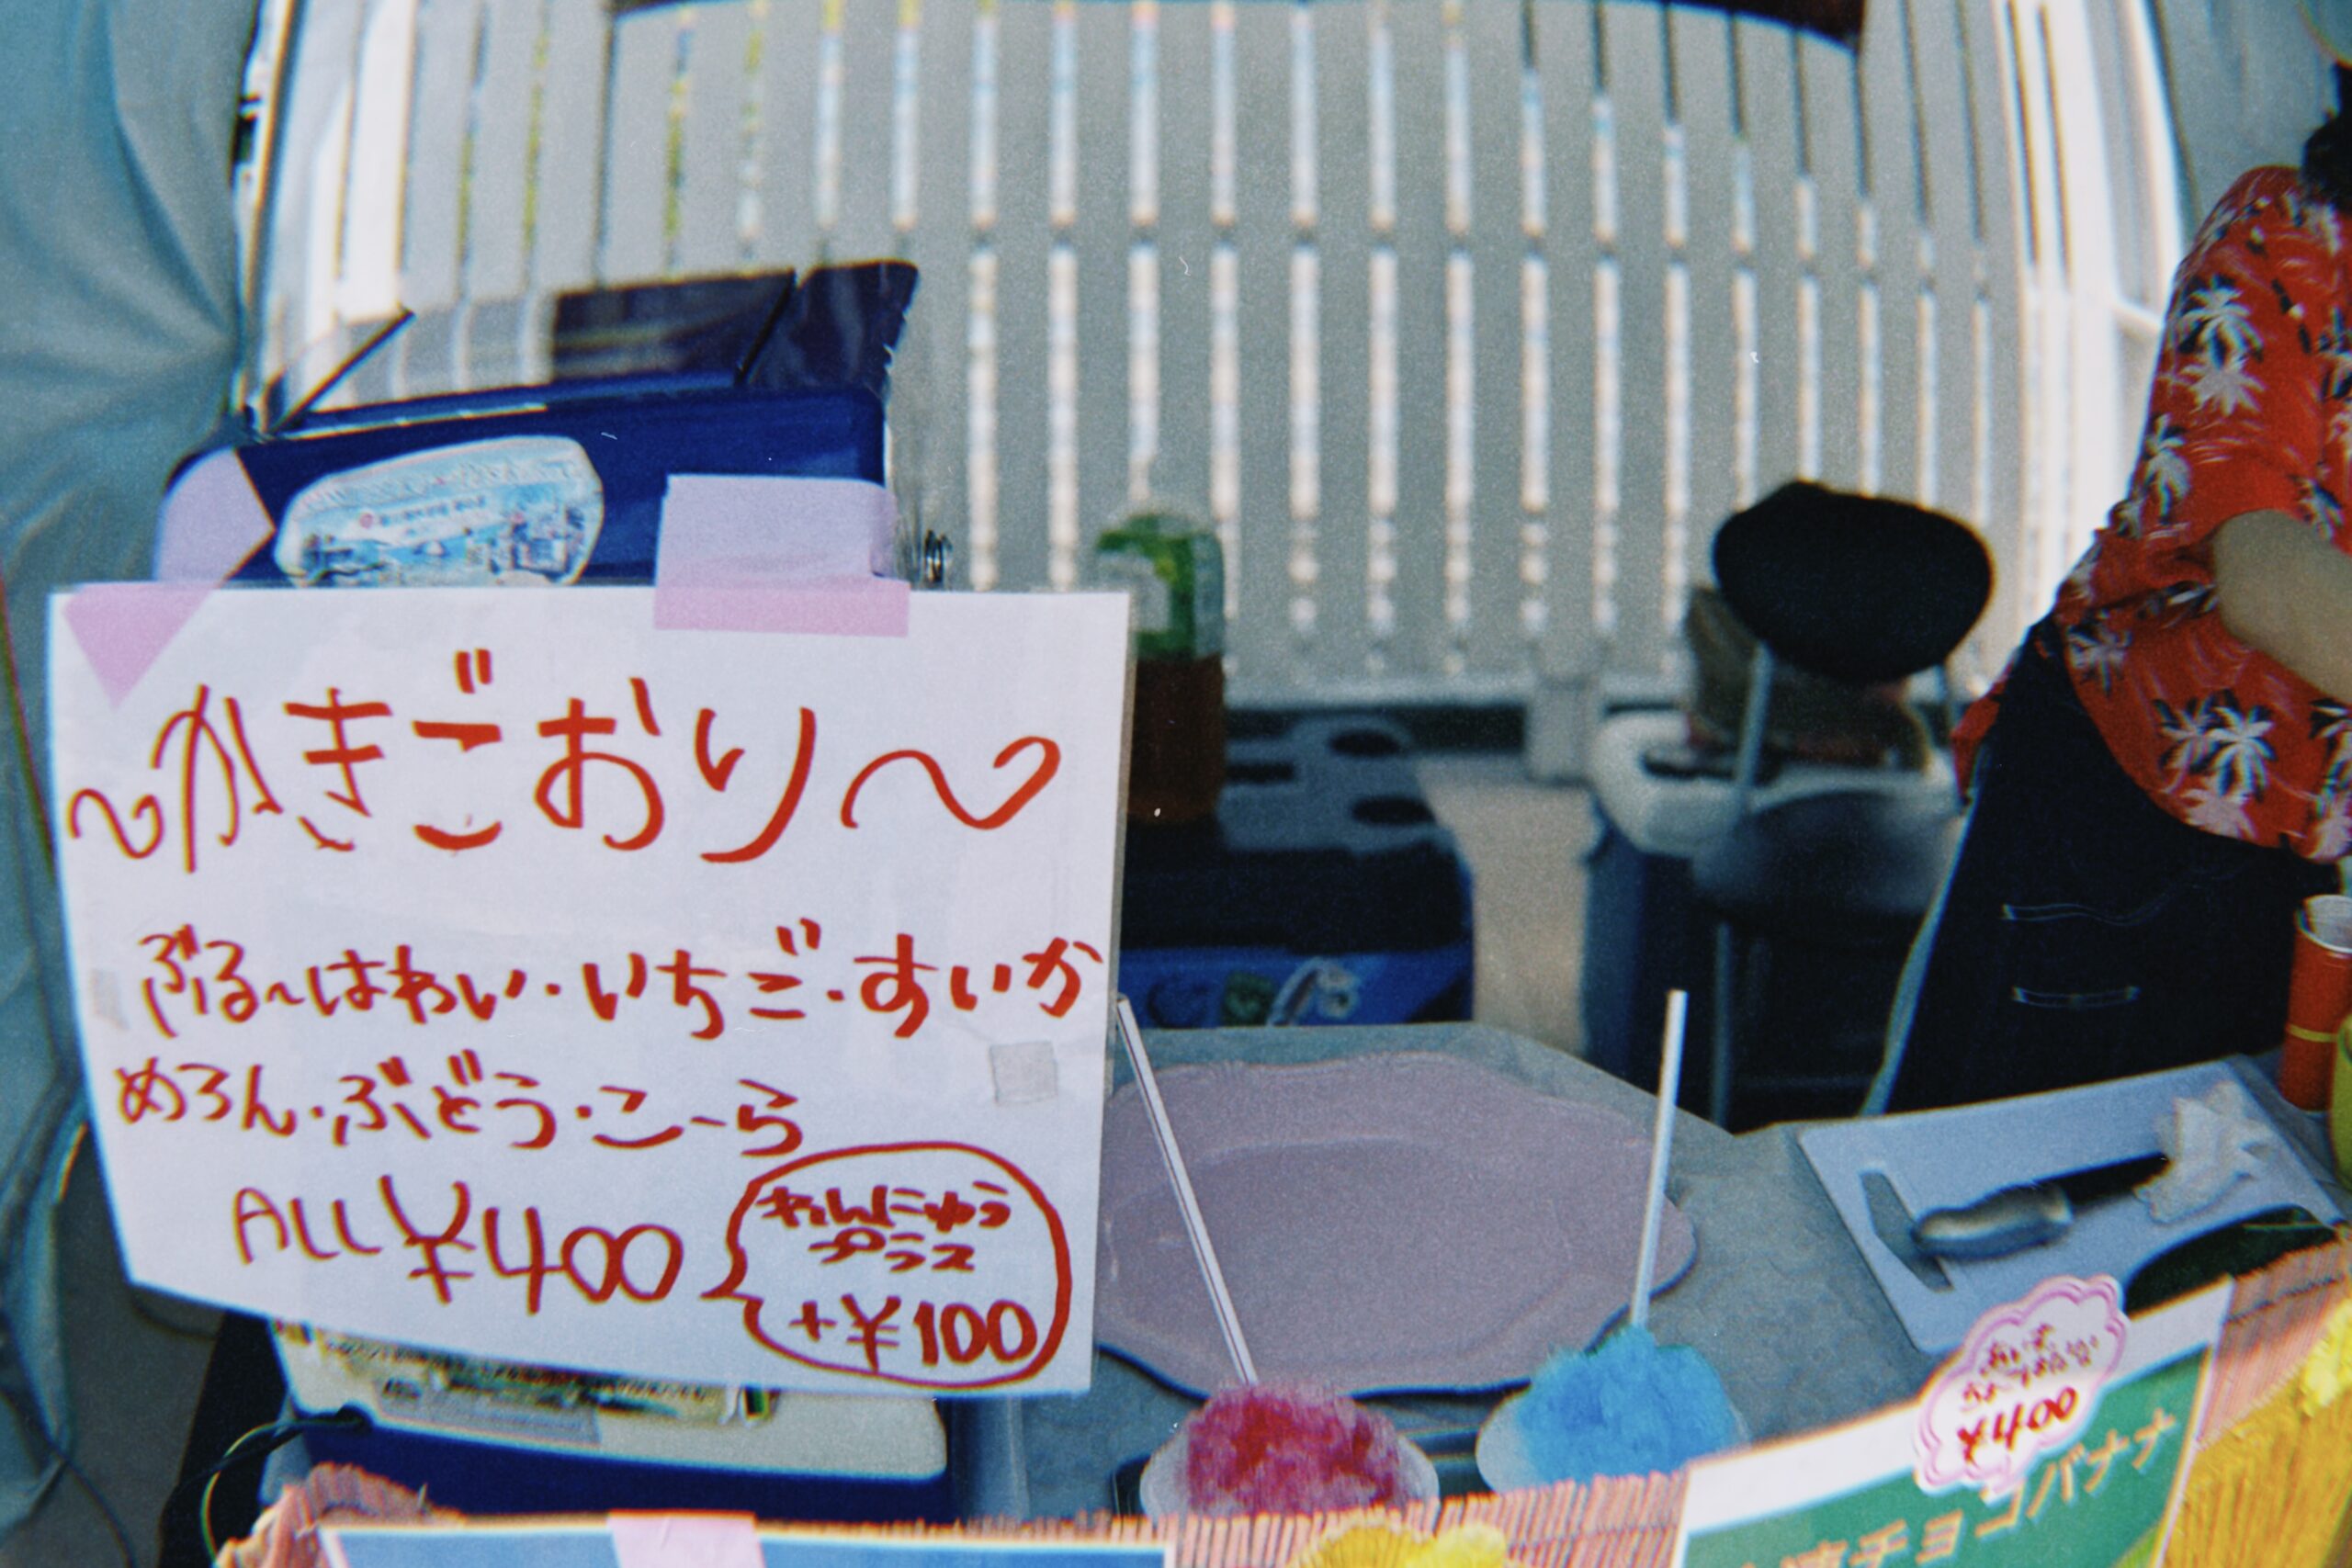 ～かきごおり～
ぶる～はわい・いちご・すいか
めろん・ぶどう・こーら
ALL ¥400
れんにゅう
プラス
+¥100
¥400
チョコバナナ